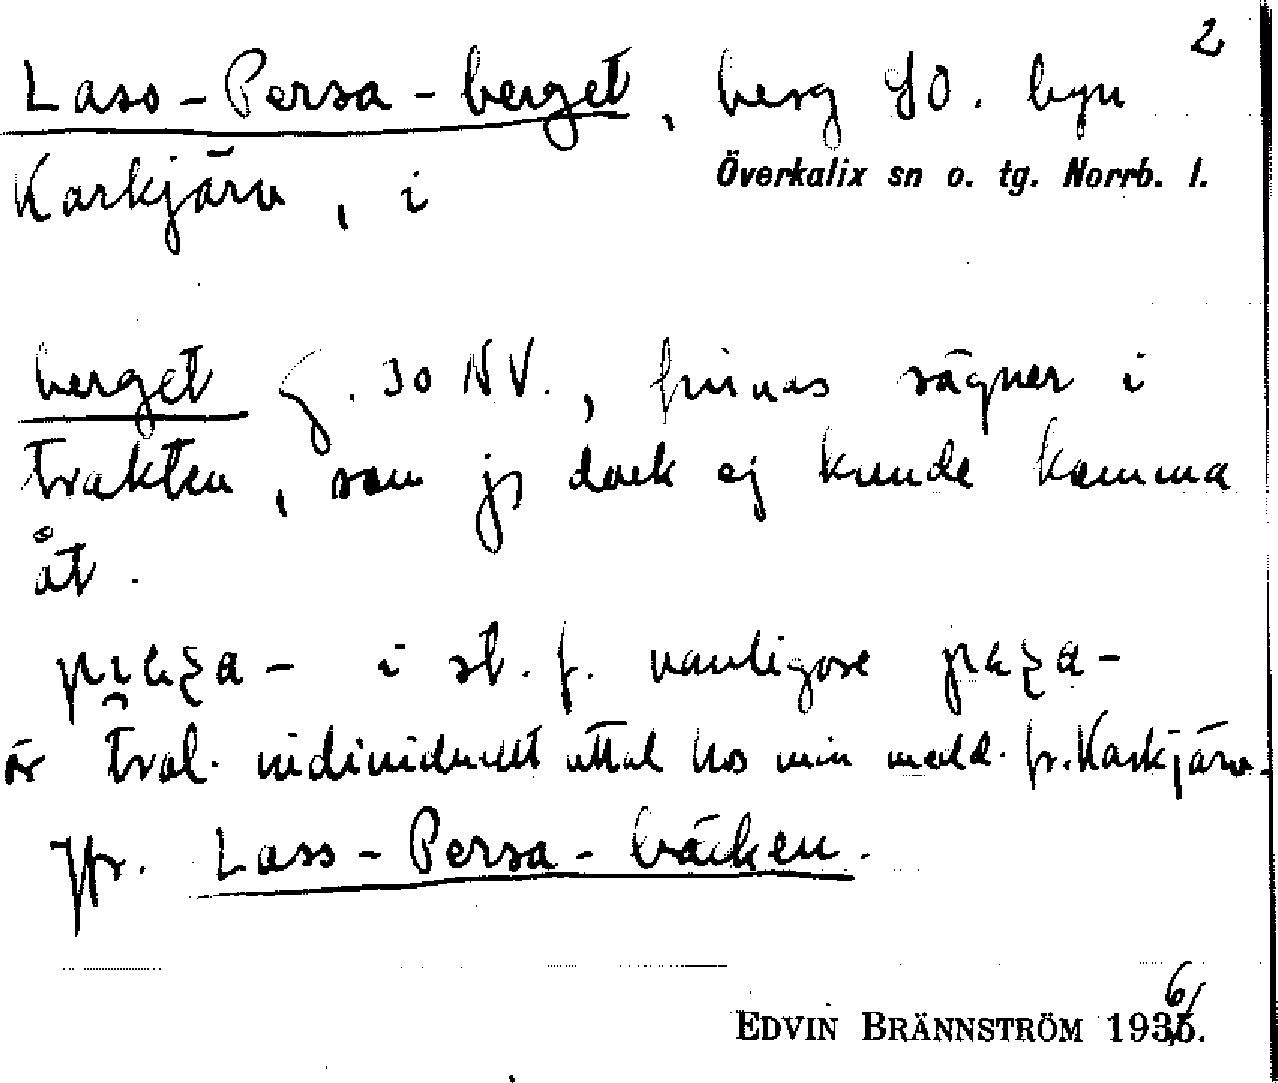 2
Lass-Persa-berget, berg SO. byn
Karkjärv, i Överkalix sn o. tg. Norrb. l.
berget g. 30 NV., finnas sägner i
trakten, som jg dock ej kunde komma
åt.
i st. f. vanligare
är tval. individuellt uttal hos min medd. fr. Karkjärv.
Jfr. Lass-Persa-bäcken.
EDVIN BRÄNNSTRÖM 1936.